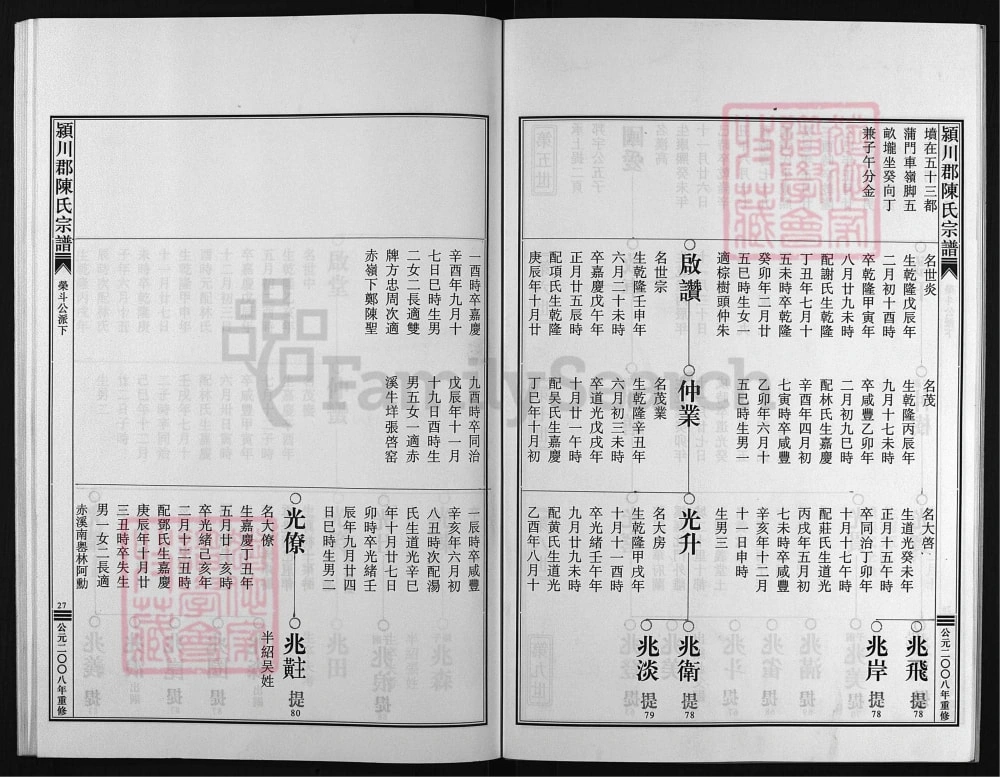 潁川郡陳氏宗譜
公元二〇〇八年重修
墳在五十三都
蒲門車嶺脚五
畝壠坐癸向丁
兼子午分金
名世炎
生乾隆戊辰年
二月初十酉時
卒乾隆甲寅年
八月廿九未時
配謝氏生乾隆
丁丑年七月十
五未時卒乾隆
癸卯年二月廿
五巳時生女一
適棕樹頭仲朱
名茂
生乾隆丙辰年
九月十七未時
卒咸豐乙卯年
二月初九巳時
配林氏生嘉慶
辛酉年四月初
七寅時卒咸豐
乙卯年六月十
五巳時生男一
名大啓
生道光癸未年
正月十五午時
卒同治丁卯年
十月十七午時
配莊氏生道光
丙戌年五月初
七未時卒咸豐
辛亥年十二月
十一日申時
生男三
兆飛 提78
兆岸 提78
啟讚
名世宗
生乾隆壬申年
六月二十未時
卒嘉慶戊午年
正月廿五辰時
配項氏生乾隆
庚辰年十月廿
仲業
名茂業
生乾隆辛丑年
六月初三未時
卒道光戊戌年
十月廿一午時
配吴氏生嘉慶
丁巳年十月初
光升
名大房
生乾隆甲戌年
十月十一酉時
卒光緒壬午年
九月廿九未時
配黄氏生道光
乙酉年八月十
兆衛 提78
兆淡 提79
一酉時卒嘉慶
辛酉年九月十
七日巳時生男
二女二長適雙
牌方忠周次適
赤嶺下鄭陳聖
九酉時卒同治
戊辰年十一月
十九日酉時生
男五女一適赤
溪牛垟張啓窑
一辰時卒咸豐
辛亥年六月初
八丑時次配湯
氏生道光辛巳
年十月廿七日
卯時卒光緒壬
辰年九月廿四
日巳時生男二
光僚
名大僚
生嘉慶丁丑年
五月廿一亥時
卒光緒己亥年
二月十三丑時
配鄧氏生嘉慶
庚辰年十月廿
三丑時卒失生
男一女二長適
赤溪南粵林阿勳
兆䵺 提80
半紹吴姓
潁川郡陳氏宗譜
榮斗公派下
27
公元二〇〇八年重修
FamilySearch